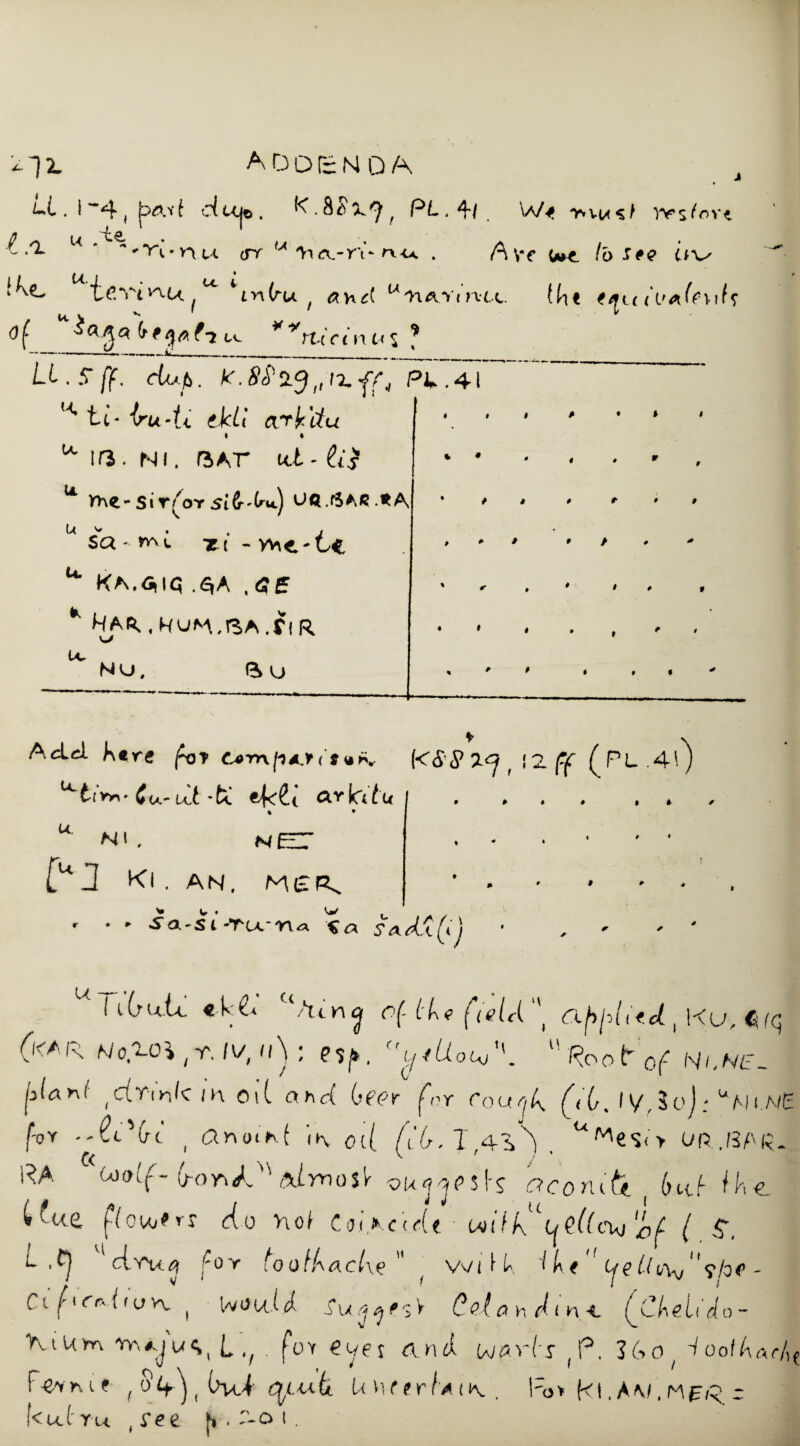 272 ADDENDA
LL. 1-4, part dup. K.8829, PL. 41. We must restore
l.2 u.te-ri-nu or u na-ri-nu. Are we to see in
the u terinu, u inbu, and u narinu. the equivalents
of u šagabegalzu **ricinus ?
LL. 5 ff. dup. K.8829,,12.ff, PL.41
u ti-bu-ti ekli arkitu . . . . . . .
u IB. NI. BAT ut-liš . . . . . . .
u me-sir (or sib-bu) UR.BAR.RA . . . . . . .
u ša-mi zi-me-te . . . . . . .
u KA.GIG.GA.GE . . . . . . .
u HAR.HUM.BA.ŠIR . . . . . . .
u NU. BU . . . . . . .
Add here for comparison K8829, 12 ff (PL.41)
u tim-bu-ut-ti ekli arkitu . . . . . . .
u NI. NE . . . . . .
[u] KI. AN. MER . . . . . . .
. . . ša-ši-ru-na ša šadi(i) . . . . .
u Tibuti ekli "king of the field", applied, KU, GIG
(KAR No.203, r. IV, 11); esp. "yellow". "Root of NI.NE-
plant, drink in oil and beer for cough (ib. IV, 30); u NI.NE
for --li'bi, anoint in oil (ib. I, 43). u Mesir UR.BAR-
RA "wolf-bond" almost suggests aconite, but the
blue flowers do not coincide with "yellow" of l. 5.
L. 9 "drug for toothache", with the "yellow" spe-
cification, would suggest Celandine (Chelido-
nium majus, L., for eyes and warts, P. 360, toothache
Fernie, 84), but quite uncertain. For KI.AN.MER =
kutru, see p. 201.